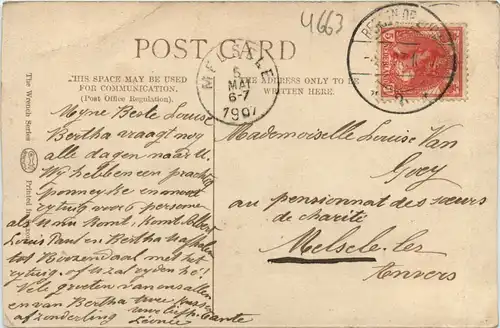 4663
POST CARD
THIS SPACE MAY BE USED
FOR COMMUNICATION.
(Post Office Regulation).
THE ADDRESS ONLY TO BE
WRITTEN HERE.
MELSELE
5
MAY
6-7
1907
The Wrench Series
Printed
Myne Beste Louise
Bertha vraagt nog
alle dagen naar U.
Wij hebben een prachtig
en
rytuig voor 6 personen
als U nu komt, komt
Louis Paul en Bertha U afhalen
tot met het
rytuig. of U zal ryden he!!
Vele groeten van ons allen
en van Bertha twee
afzonderling
Léonie
Mademoiselle Louise Van
Goey
au pensionnat des sœurs
de charité
Melsele lez
Anvers